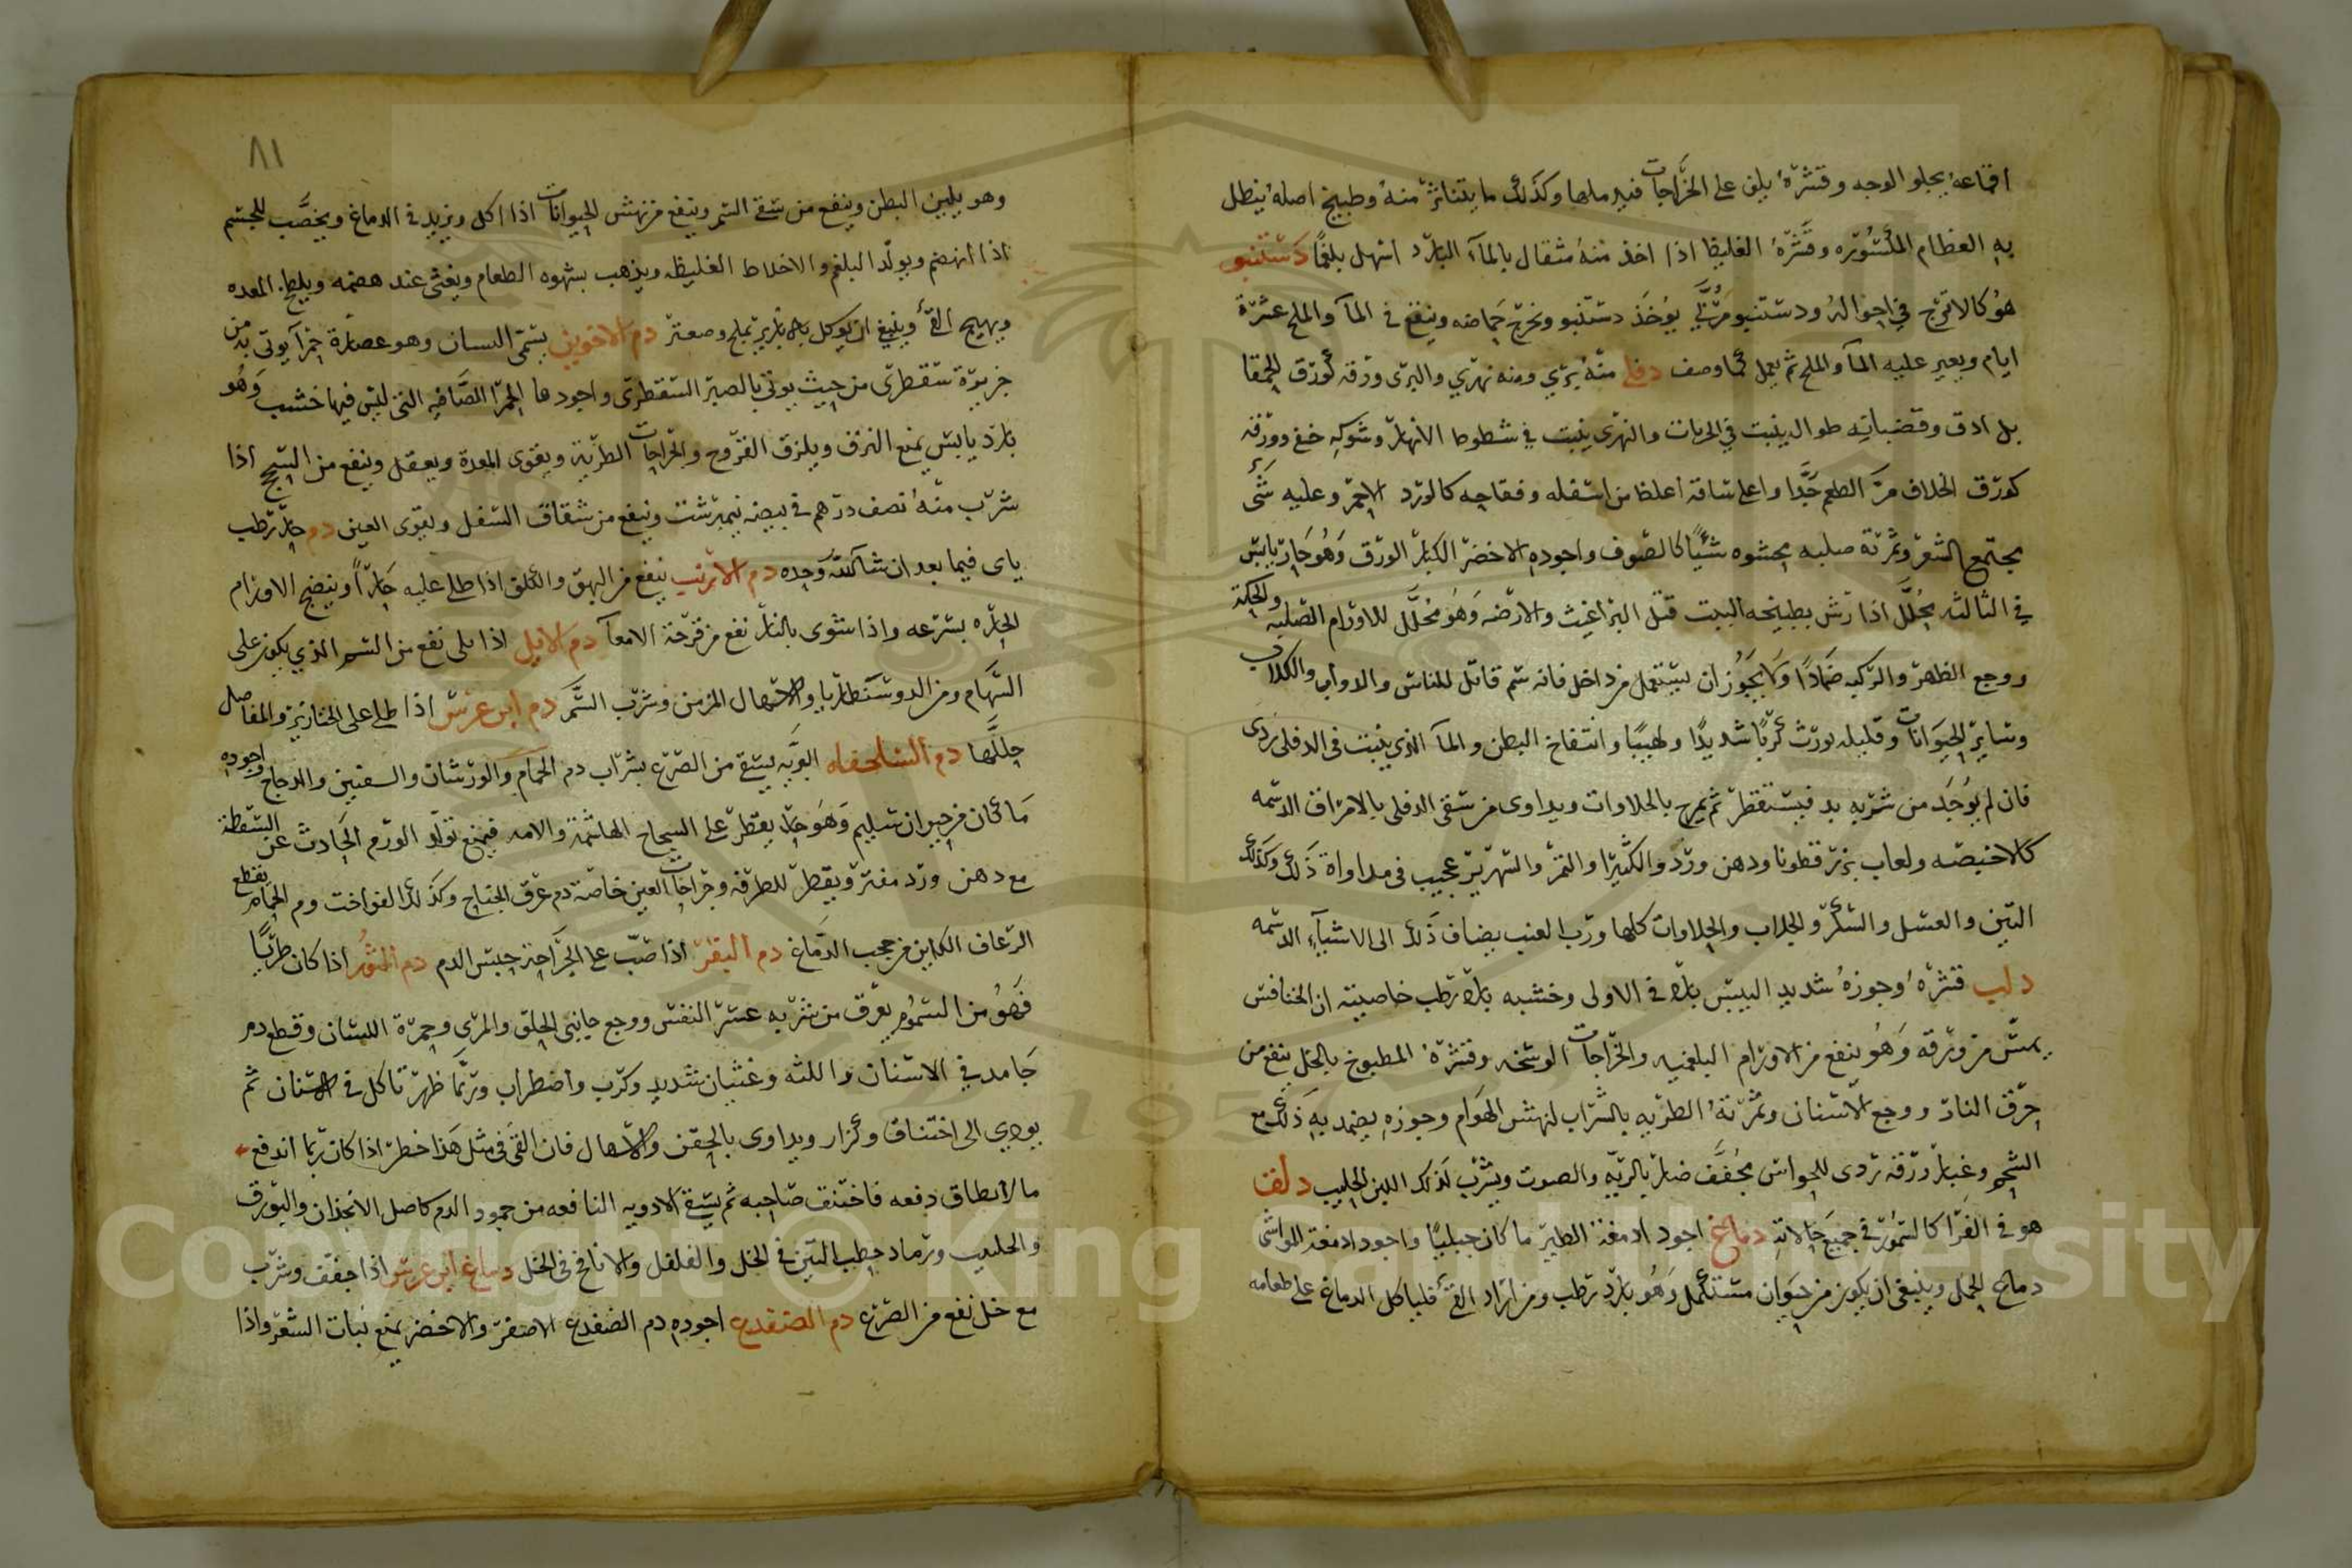 اقماعه يجلو الوجه وقشره يلقى على الخراجات فيدملها وكذلك ما يتناثر منه وطبيخ اصله ينطل
به العظام المكسوره وقشره الغليظ اذا اخذ منه مثقال بالمآء البارد اسهل بلغمًا دستنبو
هو كالاترج في احواله ودستنبو مربّى يوخذ دستنبو ويخرج حماضه وينقع في المآ والملح عشرة
ايام ويغير عليه المآ والملح ثم يعمل كما وصف دفلى منه بري ومنه نهري والبرى ورقه كورق الحمقا
بل ادق وقضبانه طوال ينبت في الخربات والنهرى ينبت في شطوط الانهار وشوكه خفى وورقه
كورق الخلاف مرّ الطعم جدًّا واعلى ساقه اغلظ من اسفله وفقاحه كالورد الاحمر وعليه شئ
يجتمع كالشعر وثمرته صلبه محشوه شيًا كالصوف واجوده الاخضر الكبار الورق وهو حار يابس
في الثالثه محلل اذا رش بطبيخه البيت قتل البراغيث والارضه وهو محلل للاورام الصلبه والحكة
ووجع الظهر والركبه ضمادًا ولا يجوز ان يستعمل من داخل فانه سم قاتل للناس والدواب والكلاب
وساير الحيوانات وقليله يورث كربًا شديدًا ولهيبًا وانتفاخ البطن والمآ الذي ينبت فى الدفلى ردى
فان لم يوجد من شربه بد فيستقطر ثم يمزج بالحلاوات ويداوى من سقى الدفلى بالامراق الدسمه
كالاخبصه ولعاب بزر قطونا ودهن ورد والكثيرا والتمر والشهريز عجيب فى مداواة ذلك وكذلك
التين والعسل والسكر والجلاب والحلاوات كلها ورب العنب يضاف ذلك الى الاشيآء الدسمه
دلب قشره وجوزه شديد اليبس بارد في الاولى وخشبه بارد رطب خاصيته ان الخنافس
يمتن من ورقه وهو ينفع من الاورام البلغميه والخراجات الوسخه وقشره المطبوخ بالخل ينفع من
حرق النار ووجع الاسنان وثمرته الطريه بالشراب لنهش الهوام وجوزه يضمد به ذلك مع
الشحم وغبار ورقه ردى للحواس مجفف ضار بالريه والصوت ويشرب لذلك اللبن الحليب دلق
هو في الفرا كالسمور في جميع حالاته دماغ اجود ادمغة الطير ما كان جبليًا واجود ادمغة المواشى
دماغ الحمل وينبغى ان يكون من حيوان مستكمل وهو بارد رطب ومن اراد القئ فليا كل الدماغ على طعامه
٨١
وهو يلين البطن وينفع من سقى السم وينفع من نهش الحيوانات اذا اكل ويزيد فى الدماغ ويخصّب للجسم
اذا انهضم ويولّد البلغم والاخلاط الغليظه ويذهب بشهوه الطعام ويغثى عند هضمه ويلطخ المعده
ويهيج القئ وينبغى ان يوكل بالابازير بملح وصعتر دم الاخوين يسمى السان وهو عصارة حمرآ يوتى به من
جزيرة سقطرى من حيث يوتى بالصبر السقطرى واجودها الحمرا الصافيه التى ليس فيها خشب وهو
بارد يابس يمنع النزف ويلزق القروح والجراحات الطرية ويقوى المعدة ويعقل وينفع من السحج اذا
شرب منه نصف درهم فى بيضه نيمبرشت وينفع من شقاق السفل ويقوى العين دم حار رطب
ياى فيما بعد ان شا الله وحده دم الارنب ينفع من البهق والكلف اذا طلى عليه حارًا وينضج الاورام
الحاره بسرعه واذا شوى بالنار نفع من قرحة الامعآ دم الايل اذا قلى نفع من السم الذي يكون على
السهام ومن الدوسنطاريا والاسهال المزمن وشرب السم دم ابن عرس اذا طلى على الخنازير والمفاصل
حللها دم السلحفاه البريه يسقى من الصرع بشراب دم الحمام والورشان والسفنين والدجاج واجوده
ما كان من حيوان سليم وهو حار يقطر على السحاج الهاشمة والامه فيمنع تولد الورم الحادث عن السقطة
مع دهن ورد مفتر ويقطر للطرفه وجراحات العين خاصة دم عرق الجناح وكذلك الفواخت ودم الحمام يقطع
الرعاف الكاين من حجب الدماغ دم البقر اذا صب على الجراحة حبس الدم دم الثور اذا كان طريًّا
فهو من السموم يعرق من شربه عسر النفس ووجع جانبى الحلق والمرى وحمرة اللسان وقطع دم
جامد في الاسنان واللثه وغثيان شديد وكرب واضطراب وربما ظهر تاكل فى الاسنان ثم
يودي الى اختناق وكزاز ويداوى بالحقن والاسهال فان القئ فى مثل هذا خطر اذا كان ربما اندفع
ما لا يطاق دفعه فاختنق صاحبه ثم يسقى الادويه النافعه من جمود الدم كاصل الانجذان والبورق
والحلتيت ورماد حطب التين فى الخل والفلفل والانافح فى الخل دماغ ابن عرس اذا جفف وشرب
مع خل نفع من الصرع دم الضفدع اجوده دم الضفدع الاصفر والاخضر يمنع نبات الشعر واذا
Copyright © King Saud University